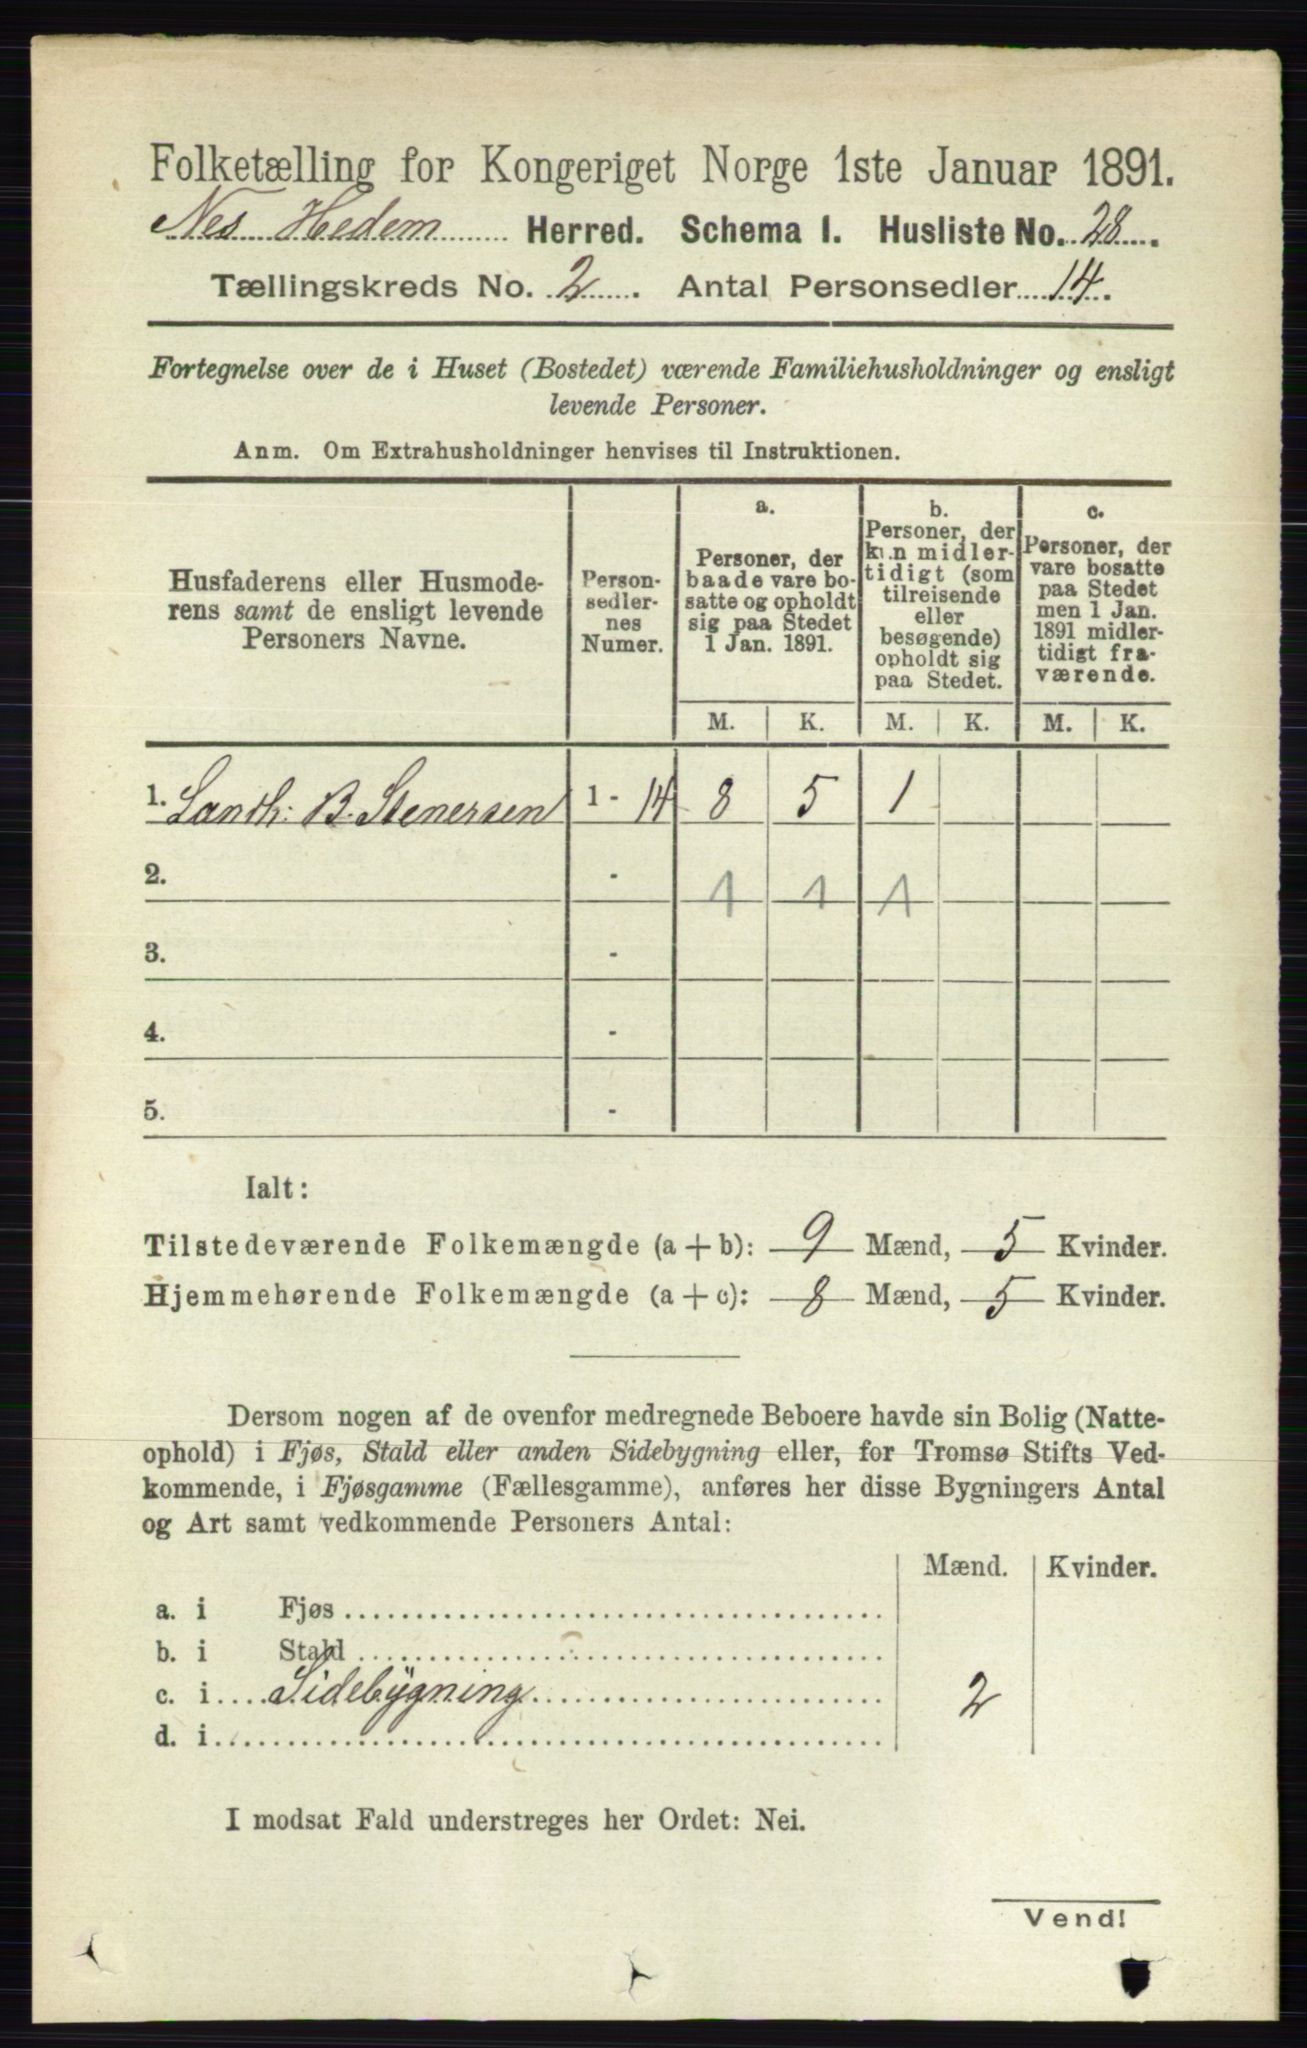 Folketælling for Kongeriget Norge 1ste Januar 1891.
Nes Hedem Herred. Schema I. Husliste No. 28.
Tællingskreds No. 2. Antal Personsedler 14.
Fortegnelse over de i Huset (Bostedet) værende Familiehusholdninger og ensligt
levende Personer.
Anm. Om Extrahusholdninger henvises til Instruktionen.
Husfaderens eller Husmode-
rens samt de ensligt levende
Personers Navne.
Person-
sedler-
nes
Numer.
a.
Personer, der
baade vare bo-
satte og opholdt
sig paa Stedet
1 Jan. 1891.
b.
Personer, der
kun midler-
tidigt (som
tilreisende
eller
besøgende)
opholdt sig
paa Stedet.
c.
Personer, der
vare bosatte
paa Stedet
men 1 Jan.
1891 midler-
tidigt fra-
værende.
M. K. M. K. M. K.
1. Lanth: B. Stenersen 1 - 14 8 5 1
2. - 1 1 1
3. -
4. -
5. -
Ialt:
Tilstedeværende Folkemængde (a + b): 9 Mænd, 5 Kvinder.
Hjemmehørende Folkemængde (a + c): 8 Mænd, 5 Kvinder.
Dersom nogen af de ovenfor medregnede Beboere havde sin Bolig (Natte-
ophold) i Fjøs, Stald eller anden Sidebygning eller, for Tromsø Stifts Ved-
kommende, i Fjøsgamme (Fællesgamme), anføres her disse Bygningers Antal
og Art samt vedkommende Personers Antal:
Mænd. Kvinder.
a. i Fjøs
b. i Stald
c. i Sidebygning 2
d. i
I modsat Fald understreges her Ordet: Nei.
Vend!